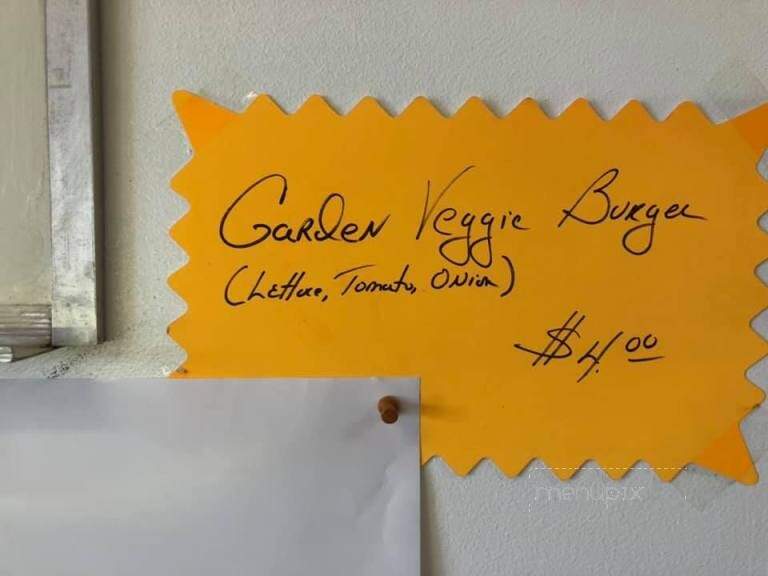 Garden Veggie Burger
(Lettuce, Tomato, Onion)
$4.00
menupix